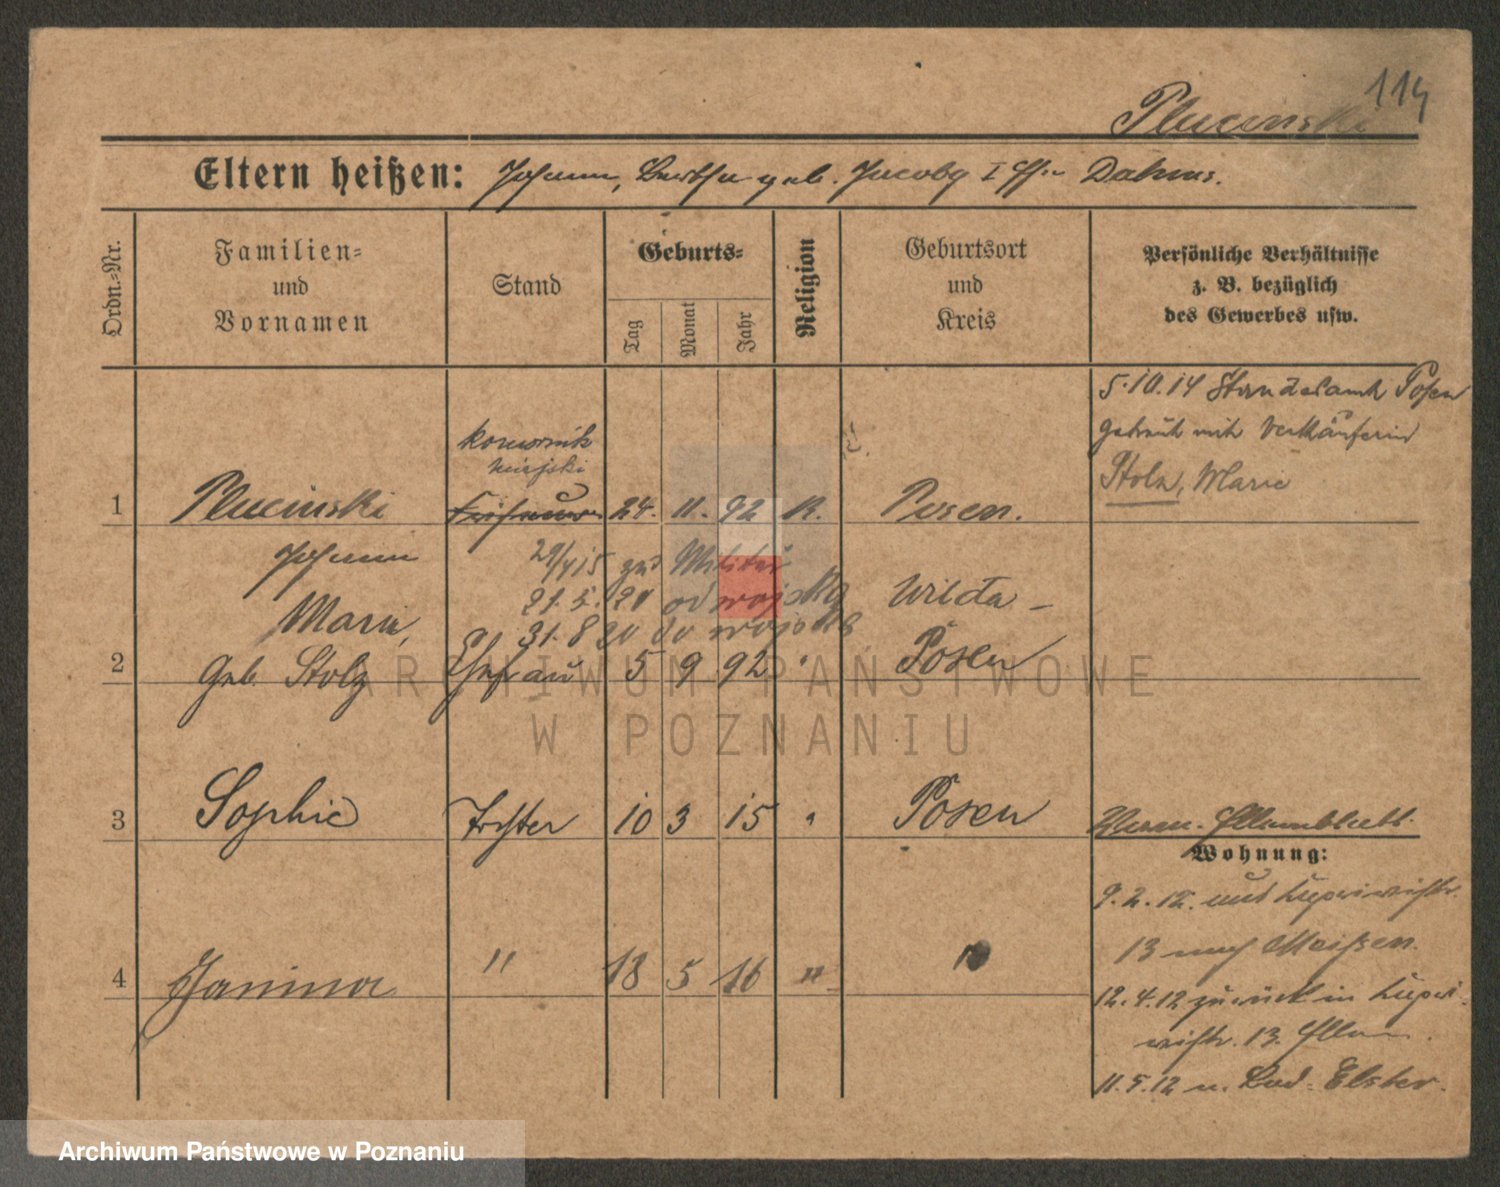 114
Plucinski
Eltern heißen: Johann, Bertha geb. Jacoby I Eh. Dahms.
Ordn.-Nr.
Familien-
und
Vornamen
Stand
Geburts-
Tag
Monat
Jahr
Religion
Geburtsort
und
Kreis
Persönliche Verhältnisse
z. B. bezüglich
des Gewerbes usw.
5.10.14 Standesamt Posen
getraut mit Verkäuferin
Stolz, Marie
komornik
miejski
1 Plucinski 24. 11. 92 K. Posen.
Johann 29/4 15 zum Militär
21.5.20 od wojska
31.8 20 do wojska
Marie, Wilda -
2 geb. Stolz Ehefrau 5 9 92 " Posen
3 Sophie Tochter 10 3 15 " Posen
Elternblatt
Wohnung:
9.2.12. und
13 nach Meißen.
4 Janina " 18 5 16 " "
12.4.12 zurück in
13. Eltern.
11.5.12 n. Bad-Elster.
ARCHIWUM PAŃSTWOWE
W POZNANIU
Archiwum Państwowe w Poznaniu